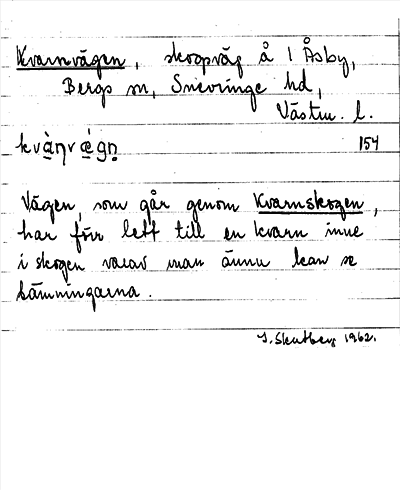 Kvarnvägen, skogsväg å 1 Åsby,
Bergs sn, Snevringe hd,
Västm. l.
kvàṇvǽgṇ 154
Vägen, som går genom Kvarnskogen,
har förr lett till en kvarn inne
i skogen varav man ännu kan se
lämningarna.
1962.